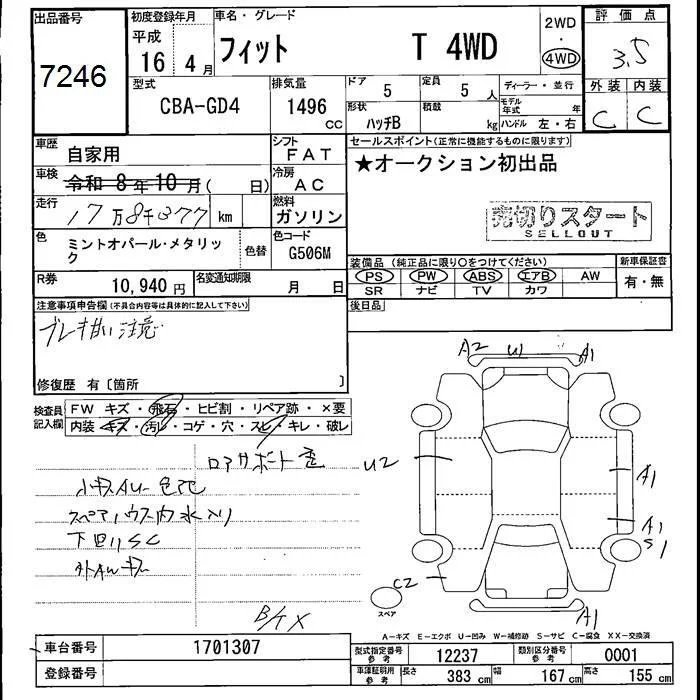 出品番号
7246
初度登録年月
平成
16 4月
車名・グレード
フィット T 4WD
2WD
・
4WD
評価点
3.5
外装 内装
C C
型式
CBA-GD4
排気量
1496
CC
ドア
5
定員
5 人
ディーラー・並行
形状
ハッチB
積載
kg
モデル年式 年
ハンドル 左・右
車歴
自家用
シフト
FAT
車検
令和 8年10月( 日)
冷房
AC
走行
17万8千377 km
燃料
ガソリン
色
ミントオパール・メタリック
色替
色コード
G506M
R券
10,940円
名変通知期限
月 日
セールスポイント(正常に機能するものに限ります)
★オークション初出品
売切りスタート
SELLOUT
装備品(純正品に限り○をつけてください)
PS PW ABS エアB AW
SR ナビ TV カワ
新車保証書
有・無
後日品
注意事項申告欄(不具合内容等は具体的に記入して下さい)
ブレーキ甘い注意
修復歴 有〔箇所 〕
検査員記入欄
FW キズ・飛石・ヒビ割・リペア跡・×要
内装 キズ・汚レ・コゲ・穴・スレ・キレ・破レ
ロアサポート歪
スペアハウス内水入り
下回りSC
A2 U1 A1
U2
A1
A1
S1
C2
スペア
A1
A-キズ E-エクボ U-凹み W-補修跡 S-サビ C-腐食 XX-交換済
車台番号
1701307
登録番号
型式指定番号
参考
12237
類別区分番号
参考
0001
車庫証明用
参考
長さ 383 cm 幅 167 cm 高さ 155 cm